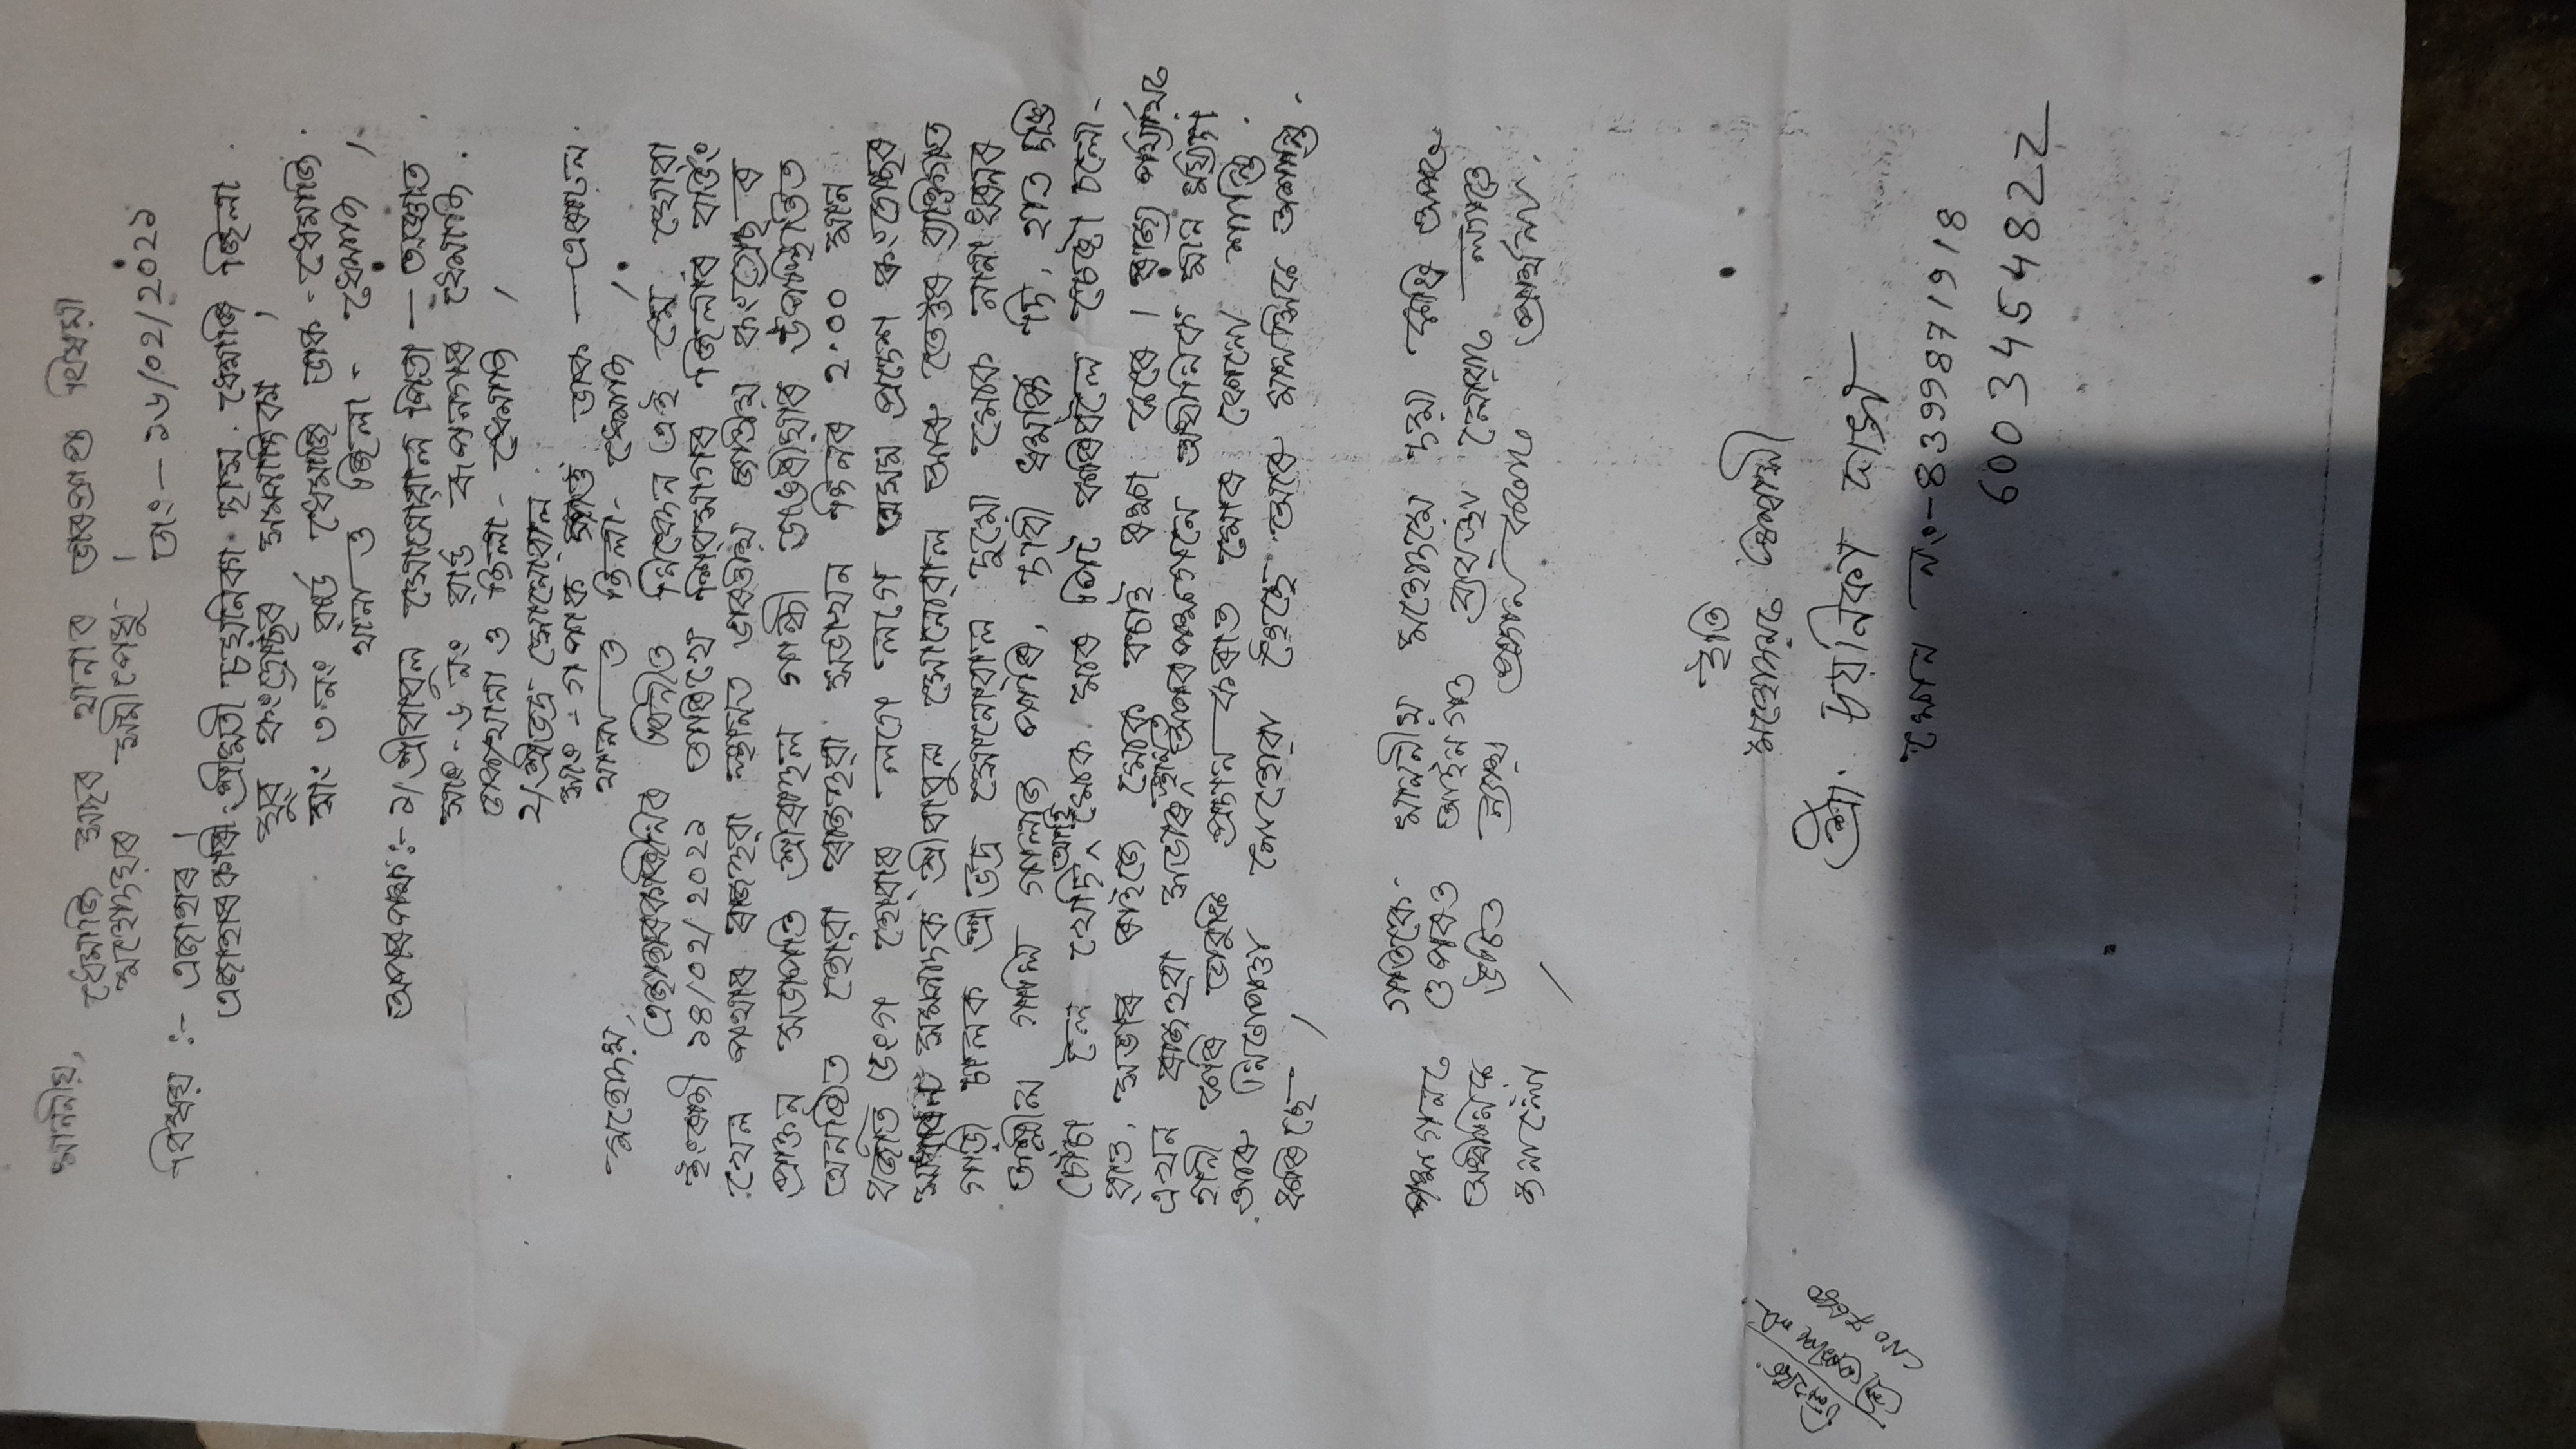 মাননীয়,
ধেমাজি সদৰ থানাৰ ভাৰপ্ৰাপ্ত বিষয়া
মহোদয়ৰ সমীপেষু ।
তাং — ১৬/০২/২০২১
বিষয় :- এজাহাৰ ।
এজাহাৰকাৰী শ্ৰীমতী চয়নিকা দাস. ধেমাজি জিলা
যুব কংগ্ৰেছৰ সম্পাদিকা ।
সাং ৩ নং ৱাৰ্ড ধেমাজি ডাক - ধেমাজি.
থানা ও জিলা - ধেমাজি ।
অপৰপক্ষ :- ১/ শ্ৰীবাবুল সোনোৱাল পিতা — অজ্ঞাত.
সাং - ৬ নং ৱাৰ্ড ৰূপনগৰ ধেমাজি.
ডাক থানা ও জিলা - ধেমাজি ।
২/ শ্ৰীভদ্ৰ সোনোৱাল.
সাং - গপাক ডাক —
থানা ও জিলা - ধেমাজি ।
মহোদয়,
এজাহাৰকাৰীনিৰ বিনীত নিবেদন এই যে, যোৱা
ইংৰাজী ১৪/০২/২০২১ তাৰিখে শিৱসাগৰ জিলাৰ বৰ্ডিং
খেল পথাৰ ৰাজহুৱা স্থানত ভাৰতীয় জাতীয় কংগ্ৰেছ ৰ
প্ৰাক্তন সভাপতি শ্ৰীৰাহুল গান্ধী ডাঙৰীয়াৰ উপস্থিতিত
অনুষ্ঠিত হোৱা ৰাজহুৱা সভাখন দিনৰ ২'০০ মান
বজাত ভংগ হোৱাৰ লগে লগে অসম প্ৰদেশ কংগ্ৰেছৰ
সাধাৰন সম্পাদক শ্ৰীবাবুল সোনোৱাল আৰু তেওঁৰ ব্যক্তিগত
গাড়ী চালক শ্ৰীভদ্ৰ সোনোৱাল দুয়ো মোক নানা ধৰনৰ
অশ্লীল গালি গালাজ পাৰি, দাবী ধমকি দি, হাত দাঙি
চোঁচা লৈ খেদি আহি মোক মাৰ পিট কৰিবলৈ চেষ্টা চলো-
ৱাত, সভাৰ ৰাইজে মোক বচাই ৰক্ষা কৰে । ৰাজ্য পৰ্য্যায়ৰ
এখন ৰাজহুৱা সভাৰ স্থানত অপৰপক্ষগনে অধীনিক মান মৰ্য্যদা
হানী কৰি ভাবুকি প্ৰদান কৰাত মোৰ কোনো শান্তি.
আৰু নিৰাপত্তা নোহোৱা হৈছে আৰু মানসিক অশান্তি.
কৰিছে ।
গতিকে মাননীয় মহোদয়ে দয়া কৰি অপৰ
পক্ষগনৰ ওপৰত আইনগত ব্যৱস্থা লোৱাৰ লগতে
অধীনিক উচিত ন্যায় প্ৰদান কৰাৰ প্ৰাৰ্থনা.
জনালোঁ ।
ইতি
মহোদয়ৰ বিশ্বাসী
শ্ৰী. চয়নিকা দাস
ফোন নং - 8399871918
6003454822
লিখক.